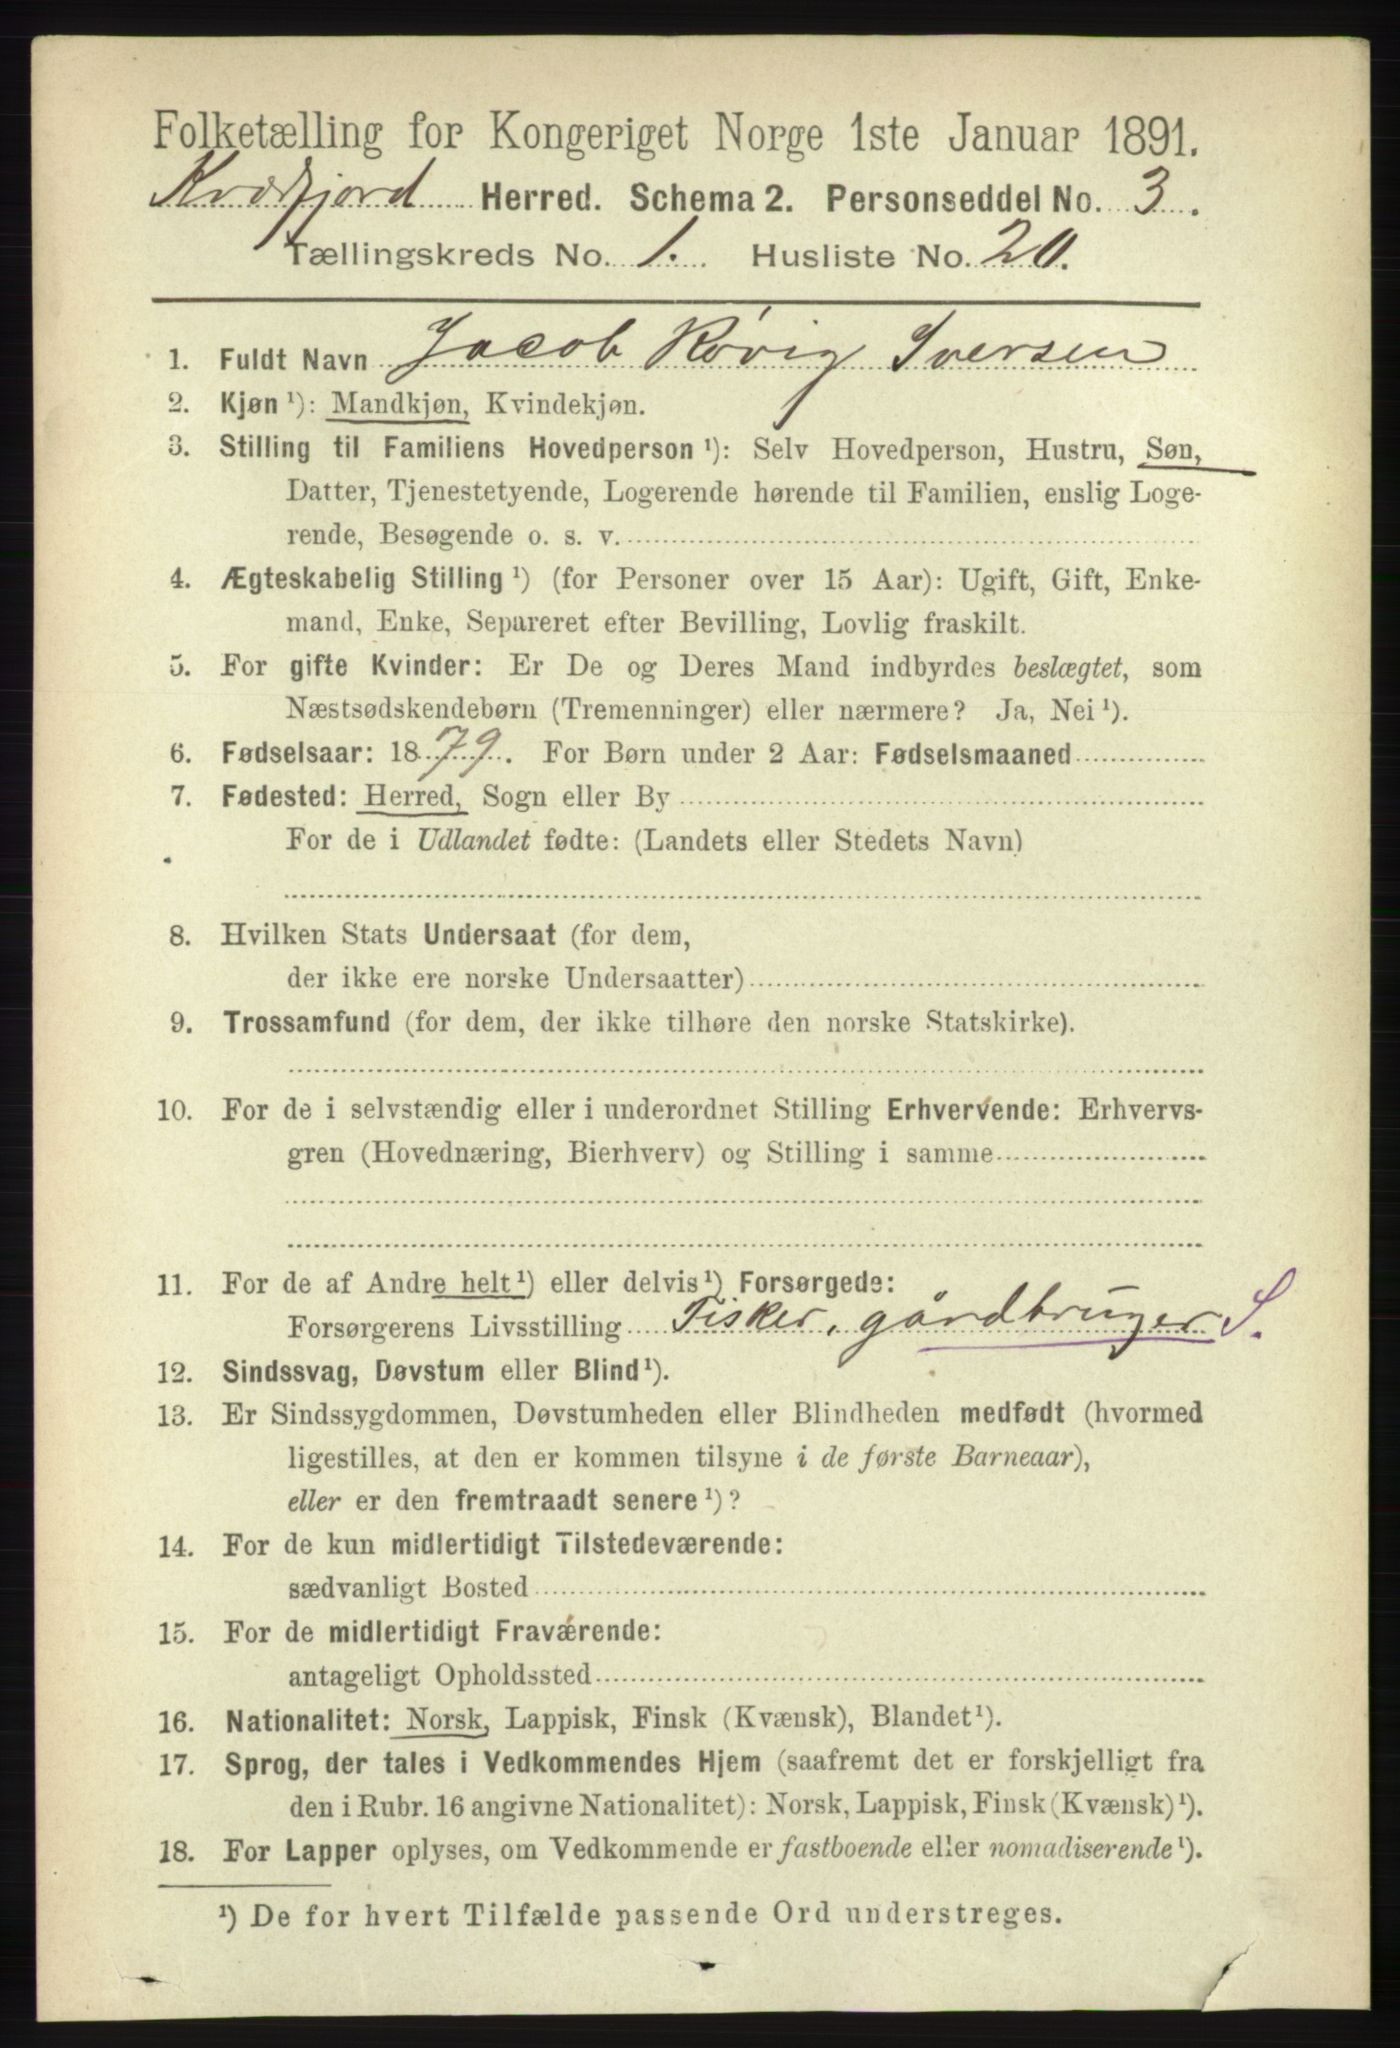 Folketælling for Kongeriget Norge 1ste Januar 1891.
Kvæfjord Herred. Schema 2. Personseddel No. 3.
Tællingskreds No. 1. Husliste No. 20.
1. Fuldt Navn Jacob Røvig Iversen
2. Kjøn ¹): Mandkjøn, Kvindekjøn.
3. Stilling til Familiens Hovedperson ¹): Selv Hovedperson, Hustru, Søn,
Datter, Tjenestetyende, Logerende hørende til Familien, enslig Loge-
rende, Besøgende o. s. v.
4. Ægteskabelig Stilling ¹) (for Personer over 15 Aar): Ugift, Gift, Enke-
mand, Enke, Separeret efter Bevilling, Lovlig fraskilt.
5. For gifte Kvinder: Er De og Deres Mand indbyrdes beslægtet, som
Næstsødskendebørn (Tremenninger) eller nærmere? Ja, Nei ¹).
6. Fødselsaar: 1879. For Børn under 2 Aar: Fødselsmaaned
7. Fødested: Herred, Sogn eller By
For de i Udlandet fødte: (Landets eller Stedets Navn)
8. Hvilken Stats Undersaat (for dem,
der ikke ere norske Undersaatter)
9. Trossamfund (for dem, der ikke tilhøre den norske Statskirke).
10. For de i selvstændig eller i underordnet Stilling Erhvervende: Erhvervs-
gren (Hovednæring, Bierhverv) og Stilling i samme
11. For de af Andre helt ¹) eller delvis ¹) Forsørgede:
Forsørgerens Livsstilling Fisker, gårdbruger S.
12. Sindssvag, Døvstum eller Blind ¹).
13. Er Sindssygdommen, Døvstumheden eller Blindheden medfødt (hvormed
ligestilles, at den er kommen tilsyne i de første Barneaar),
eller er den fremtraadt senere ¹)?
14. For de kun midlertidigt Tilstedeværende:
sædvanligt Bosted
15. For de midlertidigt Fraværende:
antageligt Opholdssted
16. Nationalitet: Norsk, Lappisk, Finsk (Kvænsk), Blandet ¹).
17. Sprog, der tales i Vedkommendes Hjem (saafremt det er forskjelligt fra
den i Rubr. 16 angivne Nationalitet): Norsk, Lappisk, Finsk (Kvænsk) ¹).
18. For Lapper oplyses, om Vedkommende er fastboende eller nomadiserende ¹).
¹) De for hvert Tilfælde passende Ord understreges.